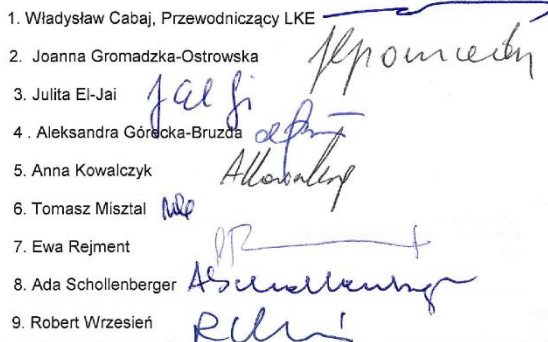 1. Władysław Cabaj, Przewodniczący LKE
2. Joanna Gromadzka-Ostrowska
3. Julita El-Jai
4 . Aleksandra Górecka-Bruzda
5. Anna Kowalczyk
6. Tomasz Misztal
7. Ewa Rejment
8. Ada Schollenberger ASchollenberger
9. Robert Wrzesień